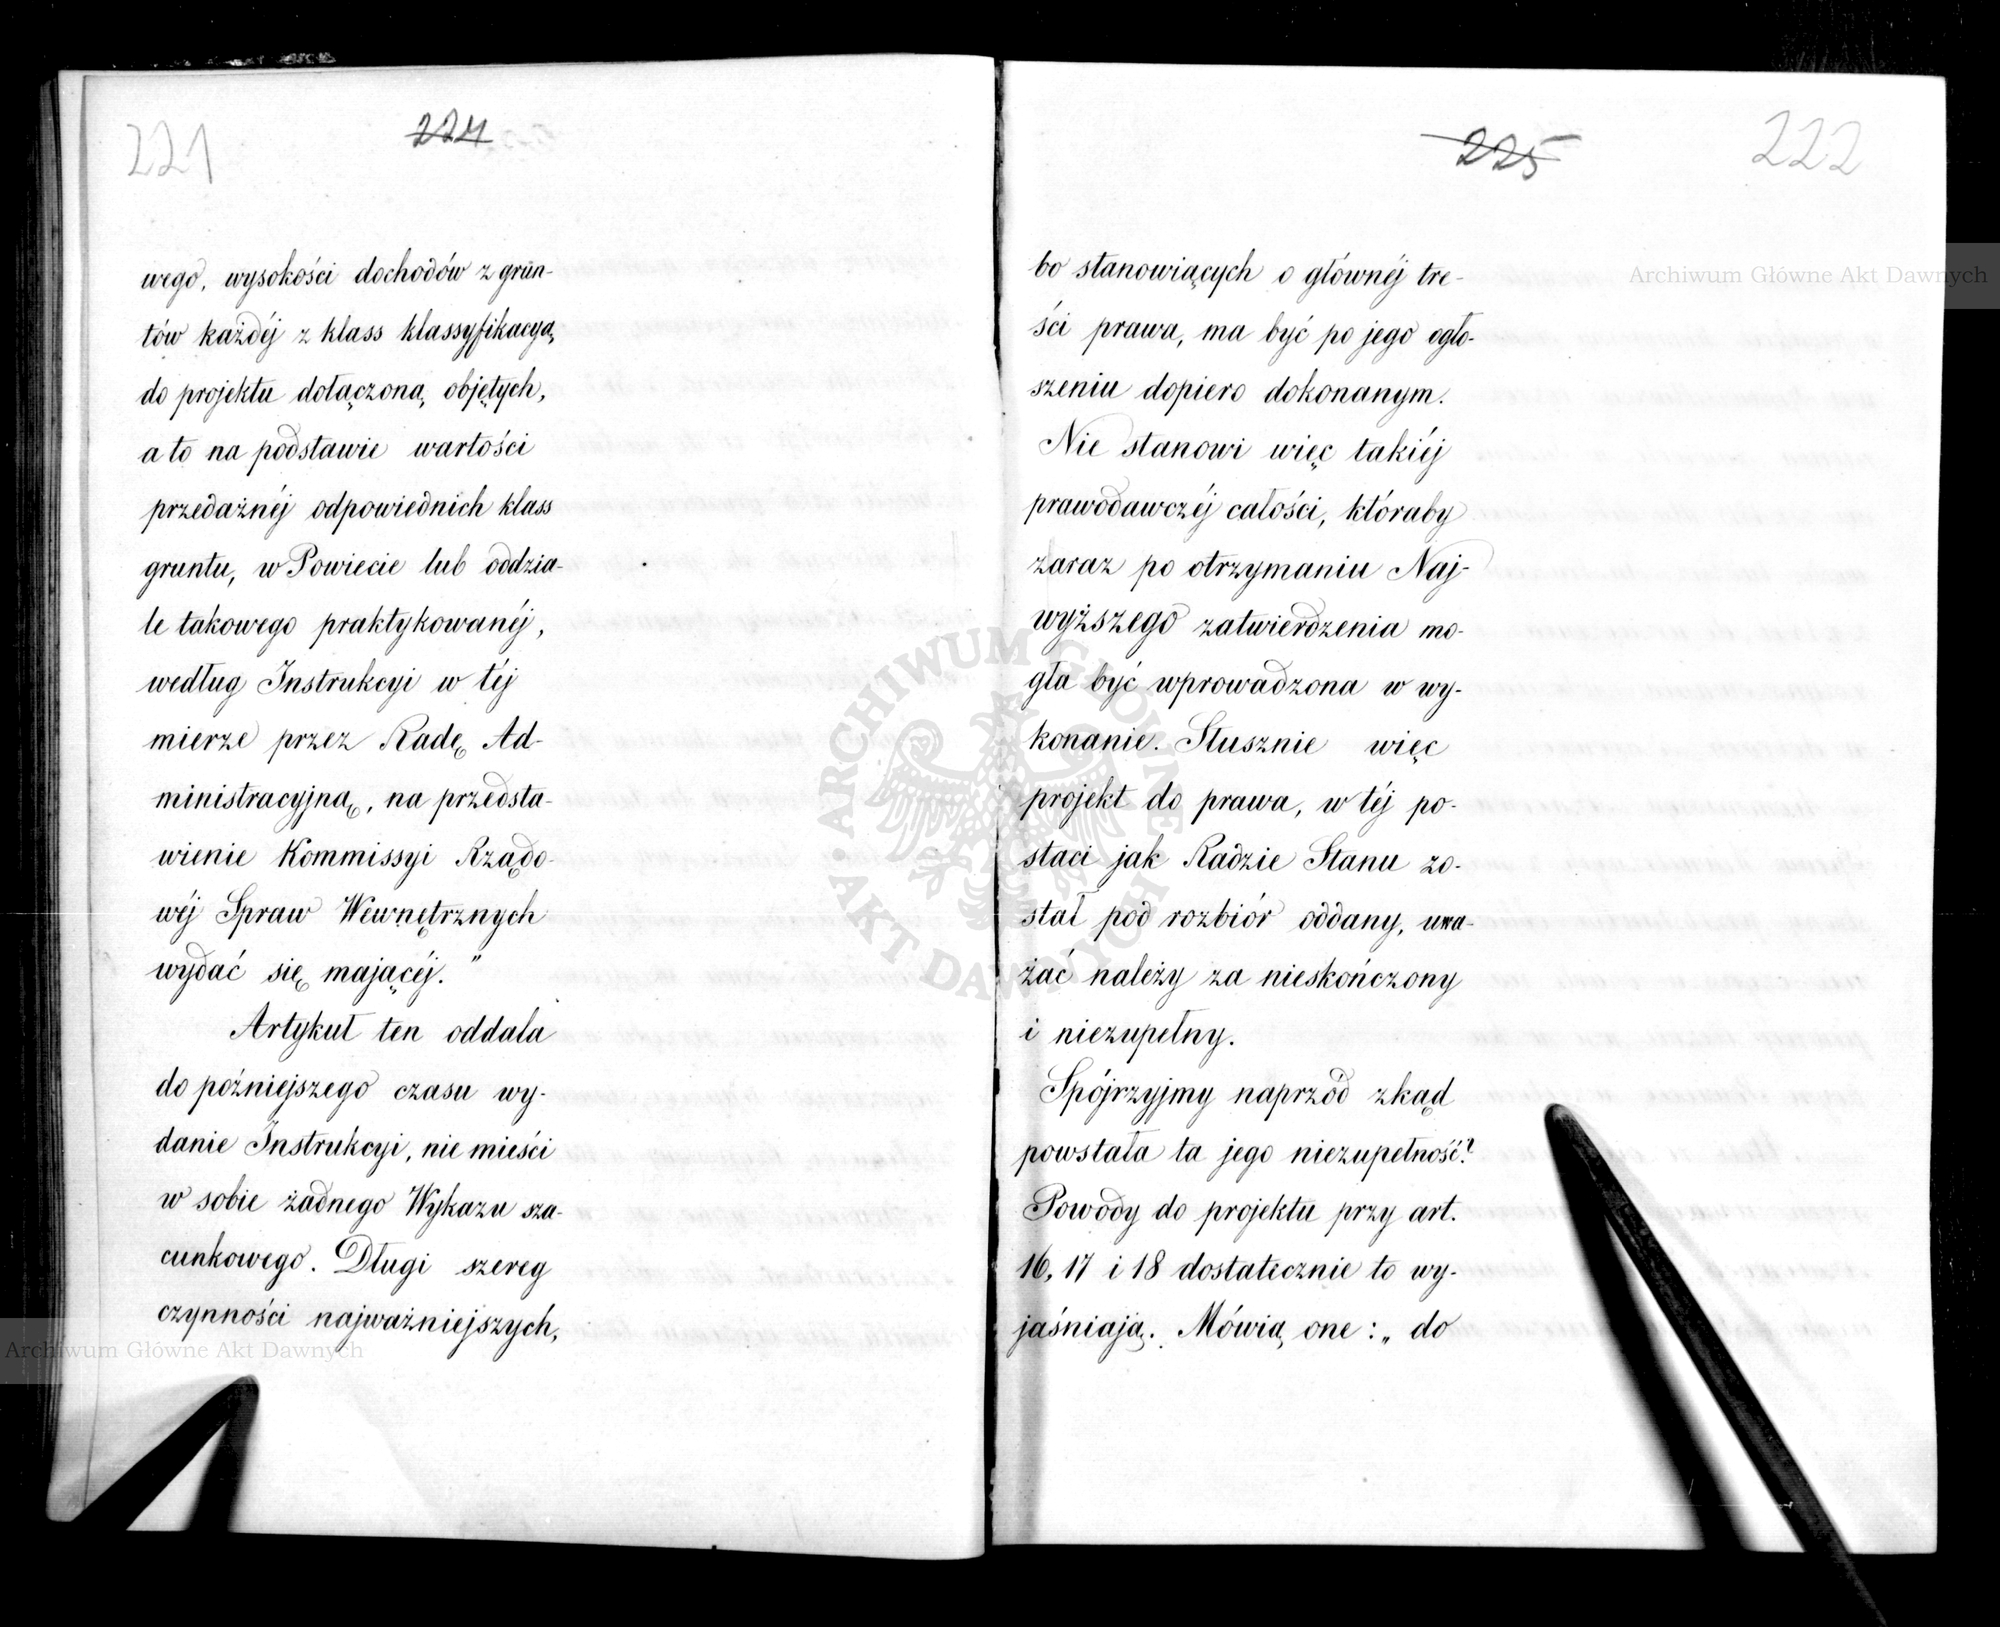 221
224
wego, wysokości dochodów z grun-
tów każdéj z klass klassyfikacyą,
do projektu dołączoną, objętych,
a to na podstawie wartości
przedażnéj odpowiednich klass
gruntu, w Powiecie lub oddzia-
le takowego praktykowanéj,
według Instrukcyi w téj
mierze przez Radę Ad-
ministracyjną, na przedsta-
wienie Kommissyi Rządo-
wéj Spraw Wewnętrznych
wydać się mającéj."
Artykuł ten oddala
do poźniejszego czasu wy-
danie Instrukcyi, nie mieści
w sobie żadnego Wykazu sza-
cunkowego. Długi szereg
czynności najważniejszych,
225
222
bo stanowiących o głównéj tre-
ści prawa, ma być po jego ogło-
szeniu dopiero dokonanym.
Nie stanowi więc takiéj
prawodawczéj całości, któraby
zaraz po otrzymaniu Naj-
wyższego zatwierdzenia mo-
gła być wprowadzona w wy-
konanie. Słusznie więc
projekt do prawa, w téj po-
staci jak Radzie Stanu zo-
stał pod rozbiór oddany, uwa-
żać należy za nieskończony
i niezupełny.
Spójrzyjmy naprzód zkąd
powstała ta jego niezupełność?
Powody do projektu przy art.
16, 17 i 18 dostatecznie to wy-
jaśniają. Mówią one: „ do
Archiwum Główne Akt Dawnych
Archiwum Główne Akt Dawnych
ARCHIWUM GŁÓWNE AKT DAWNYCH